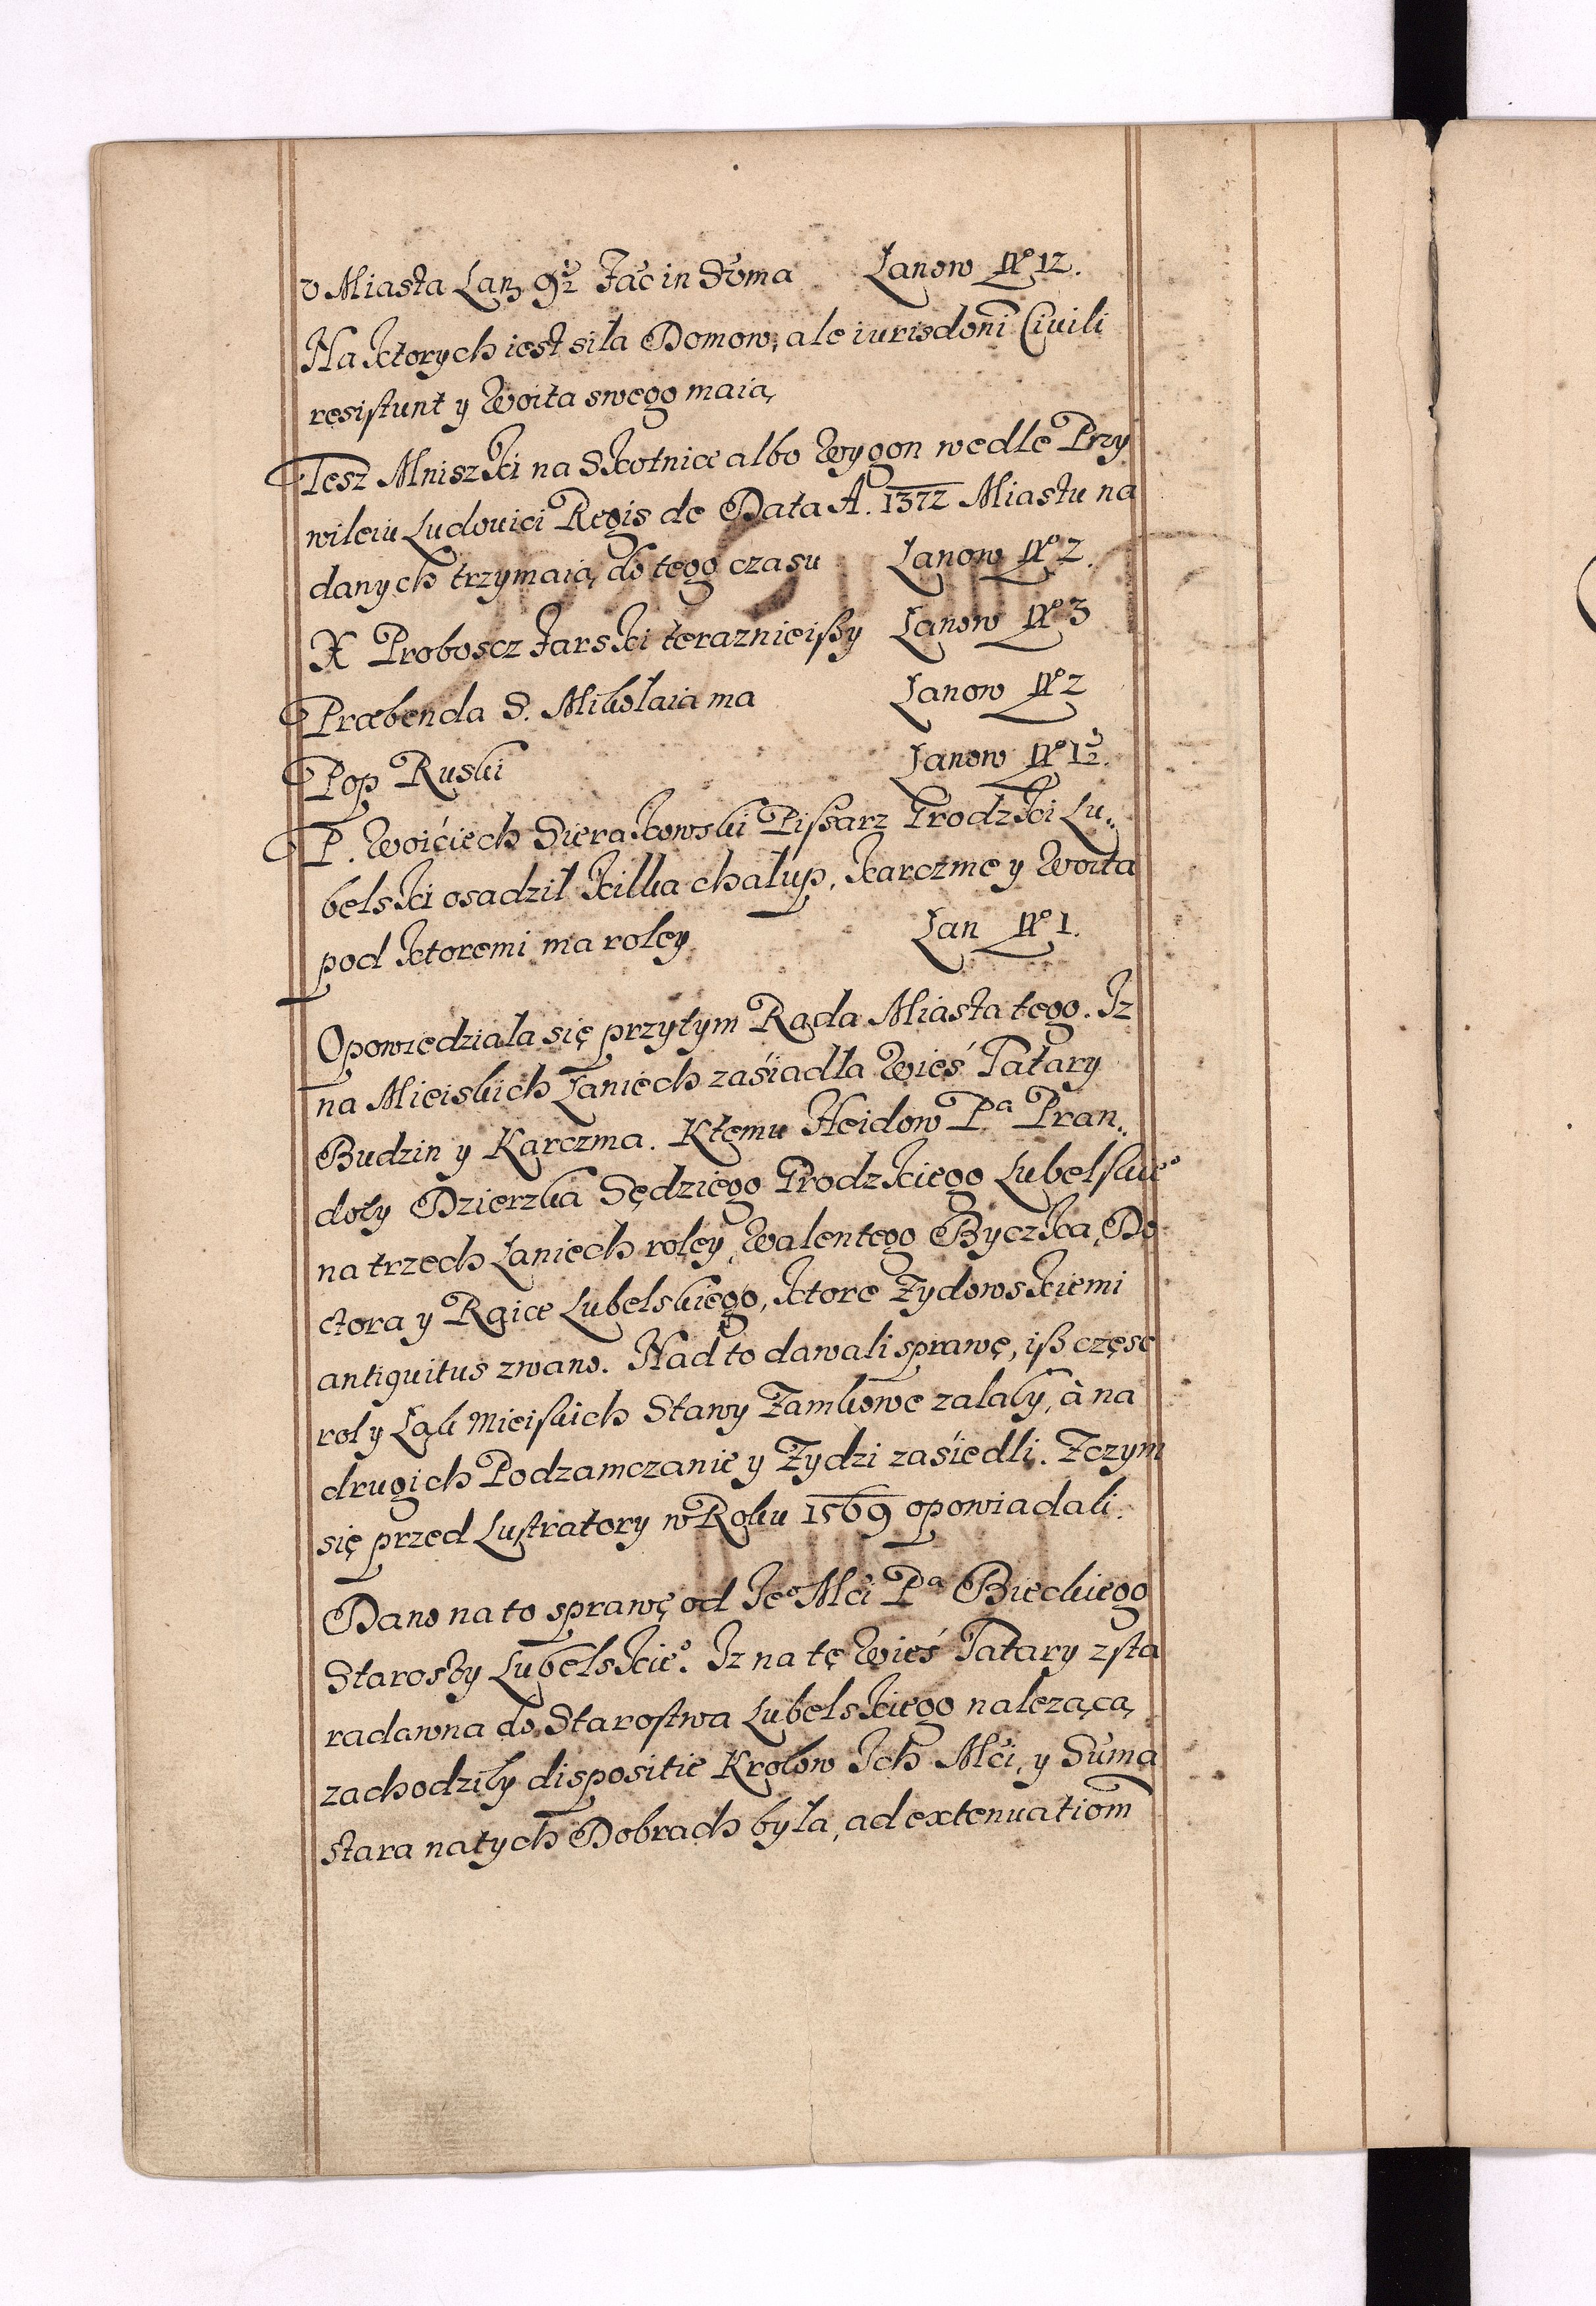 v Miasta Łan 9½ Fac̃ in Sũma Łanow Nº 12.
Na ktorych iest siła Domow, ale iurisdoni Ciuili
resistunt y Woita swego maią,
Tesz Mniszki na Skotnice albo Wygon wedle Przy
wileiu Ludouici Regis de Data A. 1372 Miastu na
danych trzymaią do tego czasu Łanow Nº 2.
X Proboscz Farski teraznieißy Łanow Nº 3
Præbenda S. Mikołaia ma Łanow Nº 2
Pop Ruski Łanow Nº 1½.
P. Woićiech Sierakowski Pißarz Grodzki Lu„
belski osadził kilka chałup, karczmę y Woita
pod ktoremi ma roley Łan Nº 1.
Opowiedziała się przytym Rada Miasta tego. Iz
na Mieiskich Łaniech zaśiadła Wieś Tatary
Budzin y Karczma. Ktemu Heidow Pª Pran„
doty Dzierzka Sędziego Grodzkiego Lubelskieº
na trzech Łaniech roley, Walentego Byczka, Do
ctora y Raice Lubelskiego, ktore Zydowskiemi
antiquitus zwano. Nad to dawali sprawę, iß częsc
roly Łąk mieiskich Stawy Zamkowe zalały, à na
drugich Podzamczanie y Zydzi zaśiedli. Zczym
się przed Lustratory w Roku 1569 opowiadali.
Dano na to sprawę od Ieº Mći Pª Bieckiego
Starosty Lubelskieº. Iz na tę Wieś Tatary zsta
radawna do Starostwa Lubelskiego nalezącą,
zachodziły dispositie Krolow Ich Mći, y Sũma
stara na tych Dobrach była, ad extenuationẽ